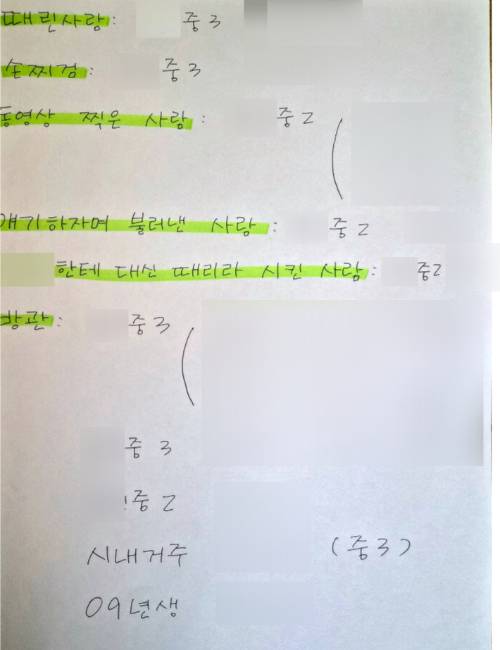 때린사람: 중3
손찌검: 중3
동영상 찍은 사람: 중2 (
얘기하자며 불러낸 사람: 중2
한테 대신 때리라 시킨 사람: 중2
방관: 중3 (
중3
중2
시내거주 (중3)
09년생